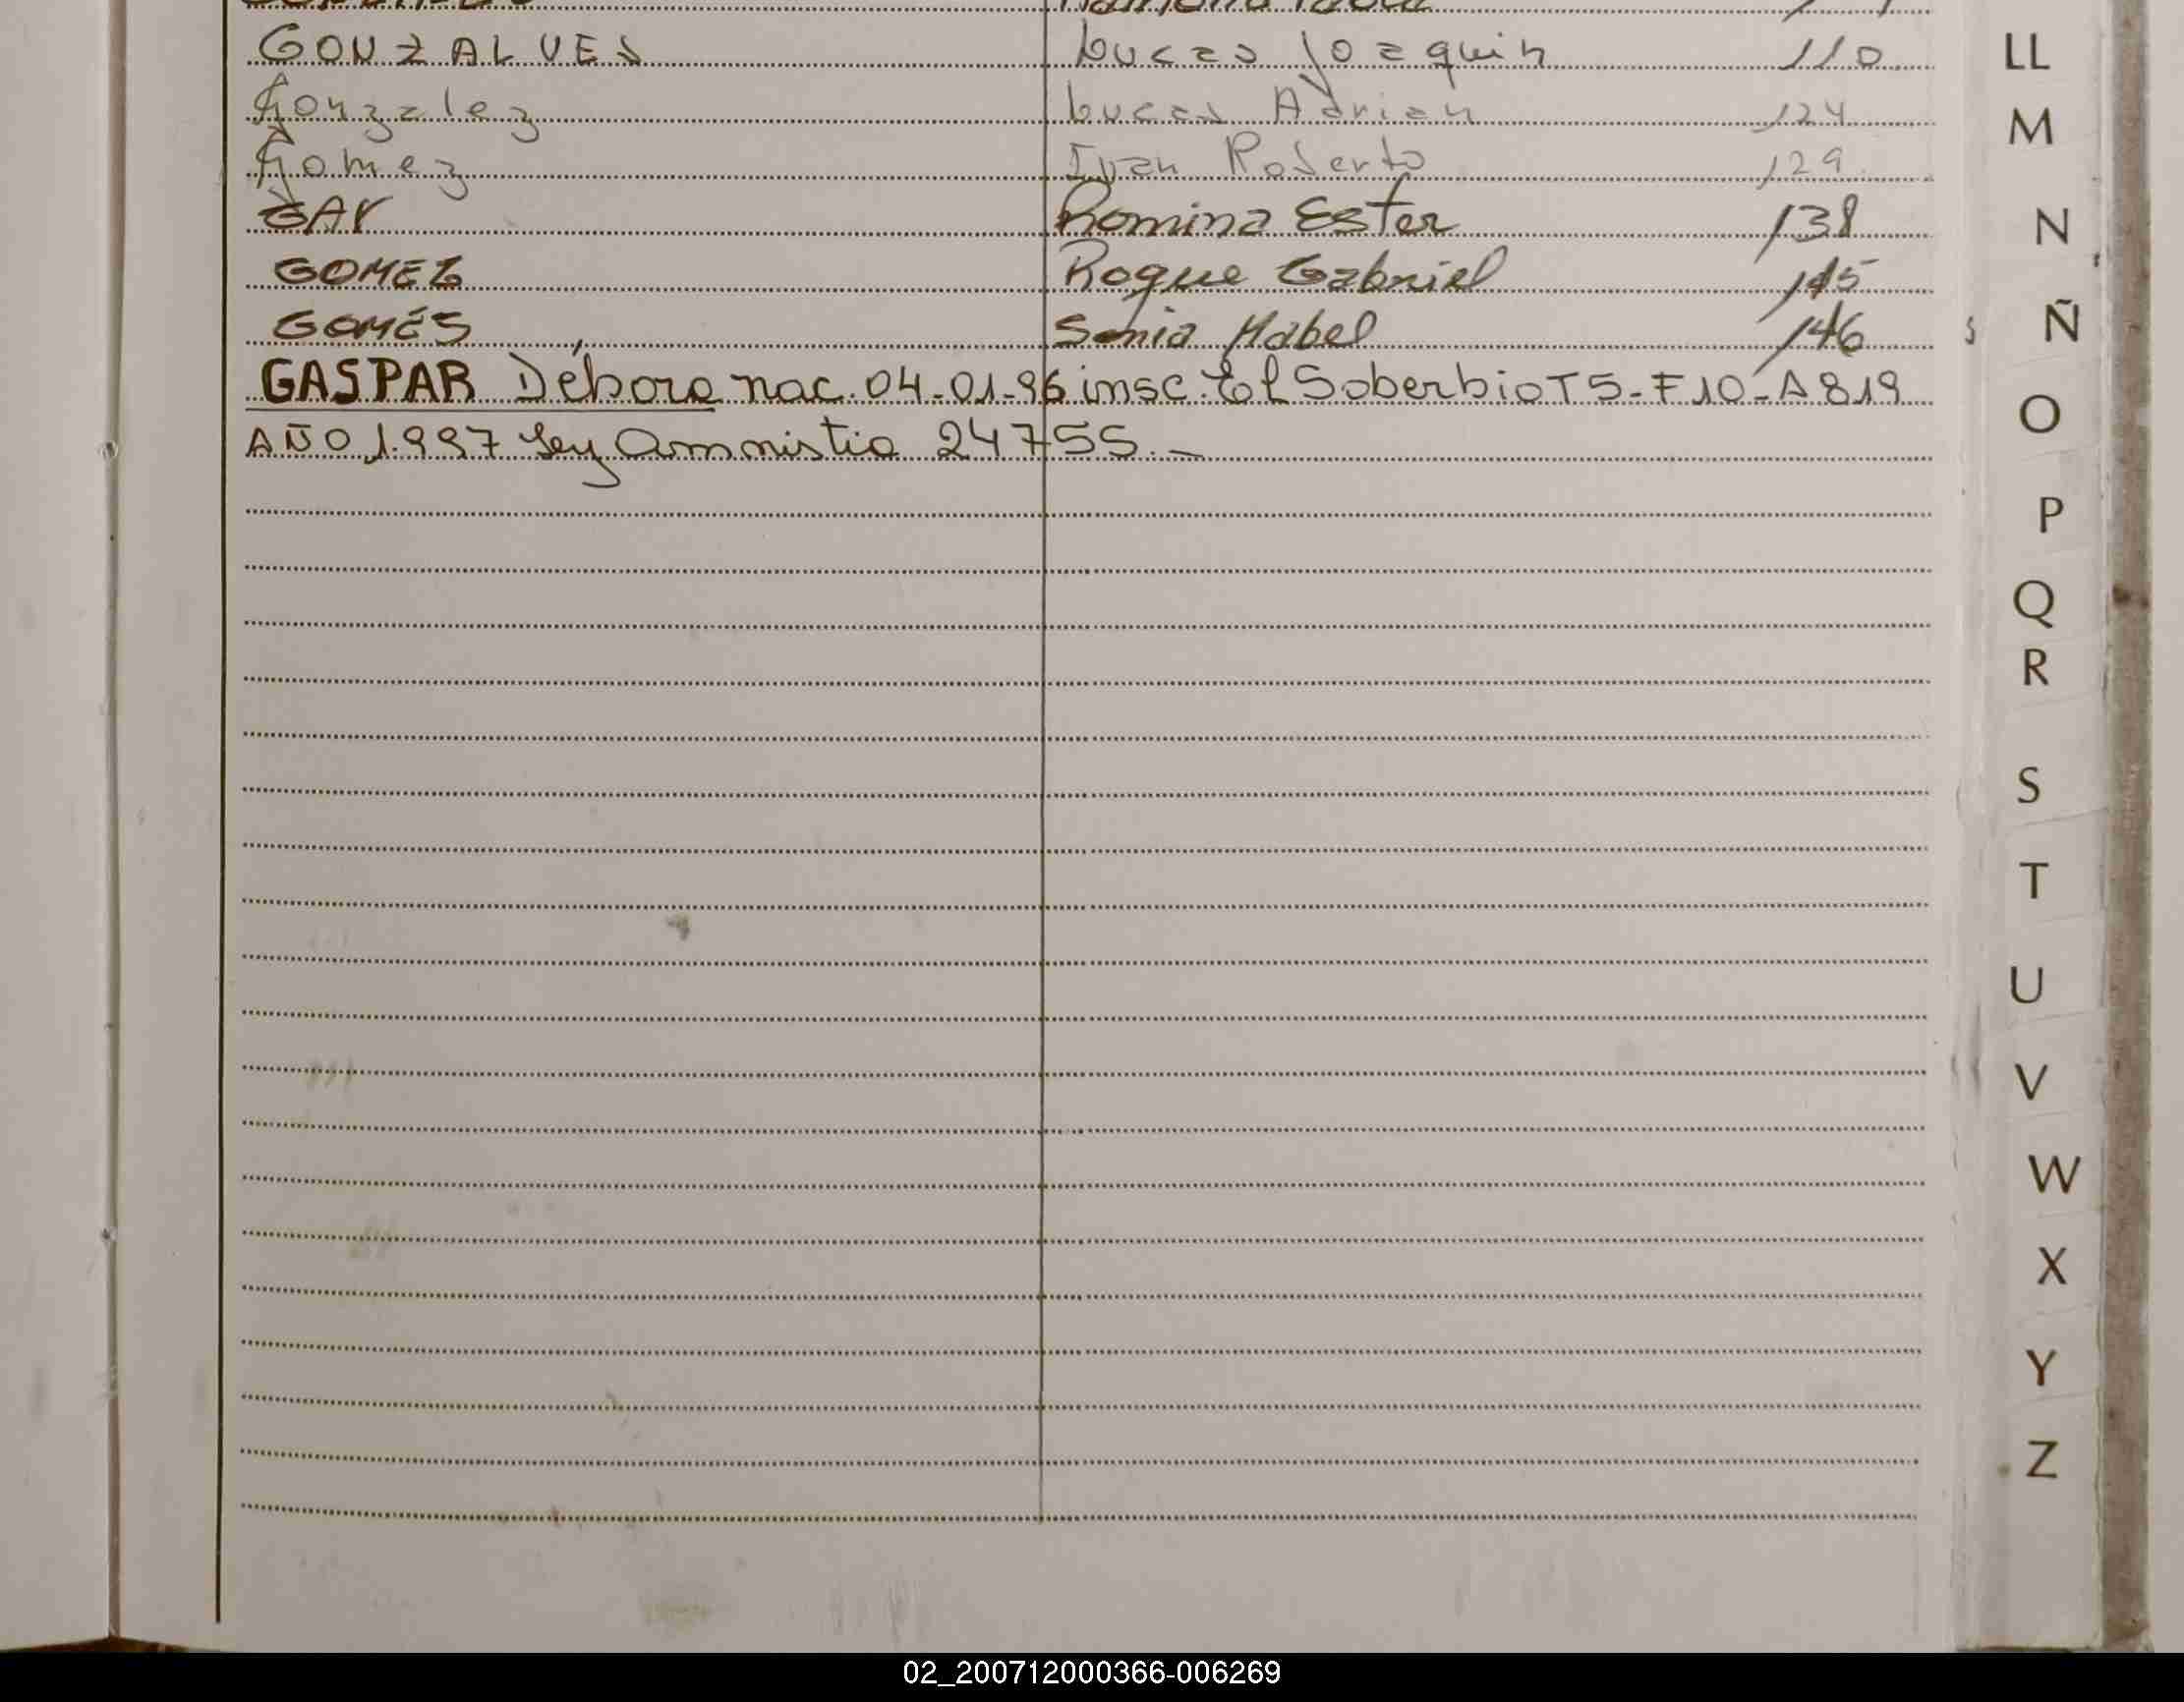 GONZALVES Lucas Joaquin 110
Gonzalez Lucas Adrian 124
Gomez Ivan Roberto 129
GAY Romina Ester 138
GOMEZ Roque Gabriel 145
GOMÉS Sonia Mabel 146
GASPAR Débora nac. 04-01-96 insc. El Soberbio T5-F10-A819
AÑO 1.997 Ley Amnistia 24755.-
LL
M
N
Ñ
O
P
Q
R
S
T
U
V
W
X
Y
Z
02_200712000366-006269